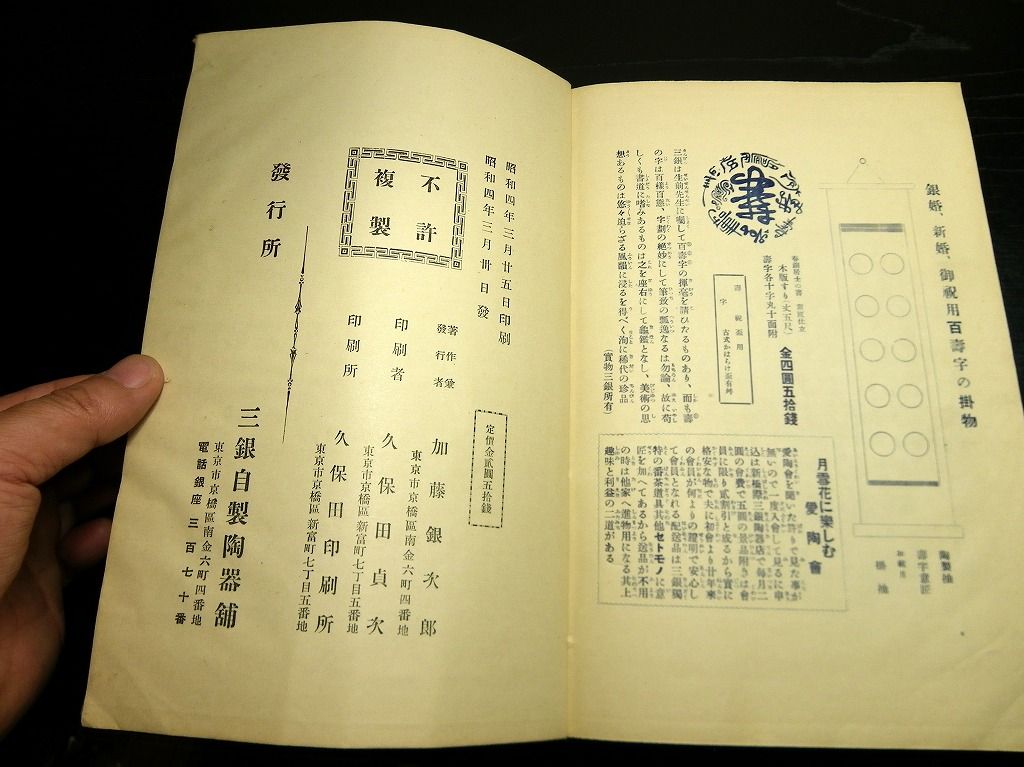 銀婚、新婚、御祝用百壽字の掛物
陶製袖
壽字意匠
掛袖
春錦居士の書
木版ずり(丈五尺)
壽字各十字丸十面附
金四圓五拾錢
壽字
祝盃用
古式かはらけ盃有舛
三銀は生前先生に囑して百壽字の揮毫を請ひたるものあり、而も壽
の字は百樣百態、字劃の絶妙にして筆致の瓢逸なるは勿論、故に苟
しくも書道に嗜みあるものは之を座右にして龜鑑となし、美術の思
想あるものは悠々迫らざる風韻に浸るを得べく洵に稀代の珍品
(實物三銀所有)
月雪花に樂しむ
愛陶會
愛陶會を聞いた許りで見た事が
無いので一度入會して見るに申
込は新橋際三銀陶器店で毎月二
圓の會費で五圓の景品附きは會
員に限り貳割引と成るから實に
格安な物で夫に初會より廿年來
の會員が何よりの證明で安心し
て會員となれる配送品は三銀獨
特の番茶道具其他セトモノに意
匠を加へてあるから送品が不用
の時は他家へ進物用になる其上
趣味と利益の二道がある
昭和四年三月廿五日印刷
昭和四年三月卅日發
不許
複製
定價金貳圓五拾錢
著作兼
發行者
加藤銀次郎
東京市京橋區南金六町四番地
印刷者
久保田貞次
東京市京橋區新富町七丁目五番地
印刷所
久保田印刷所
東京市京橋區新富町七丁目五番地
發行所
三銀自製陶器舖
東京市京橋區南金六町四番地
電話銀座三百七十番